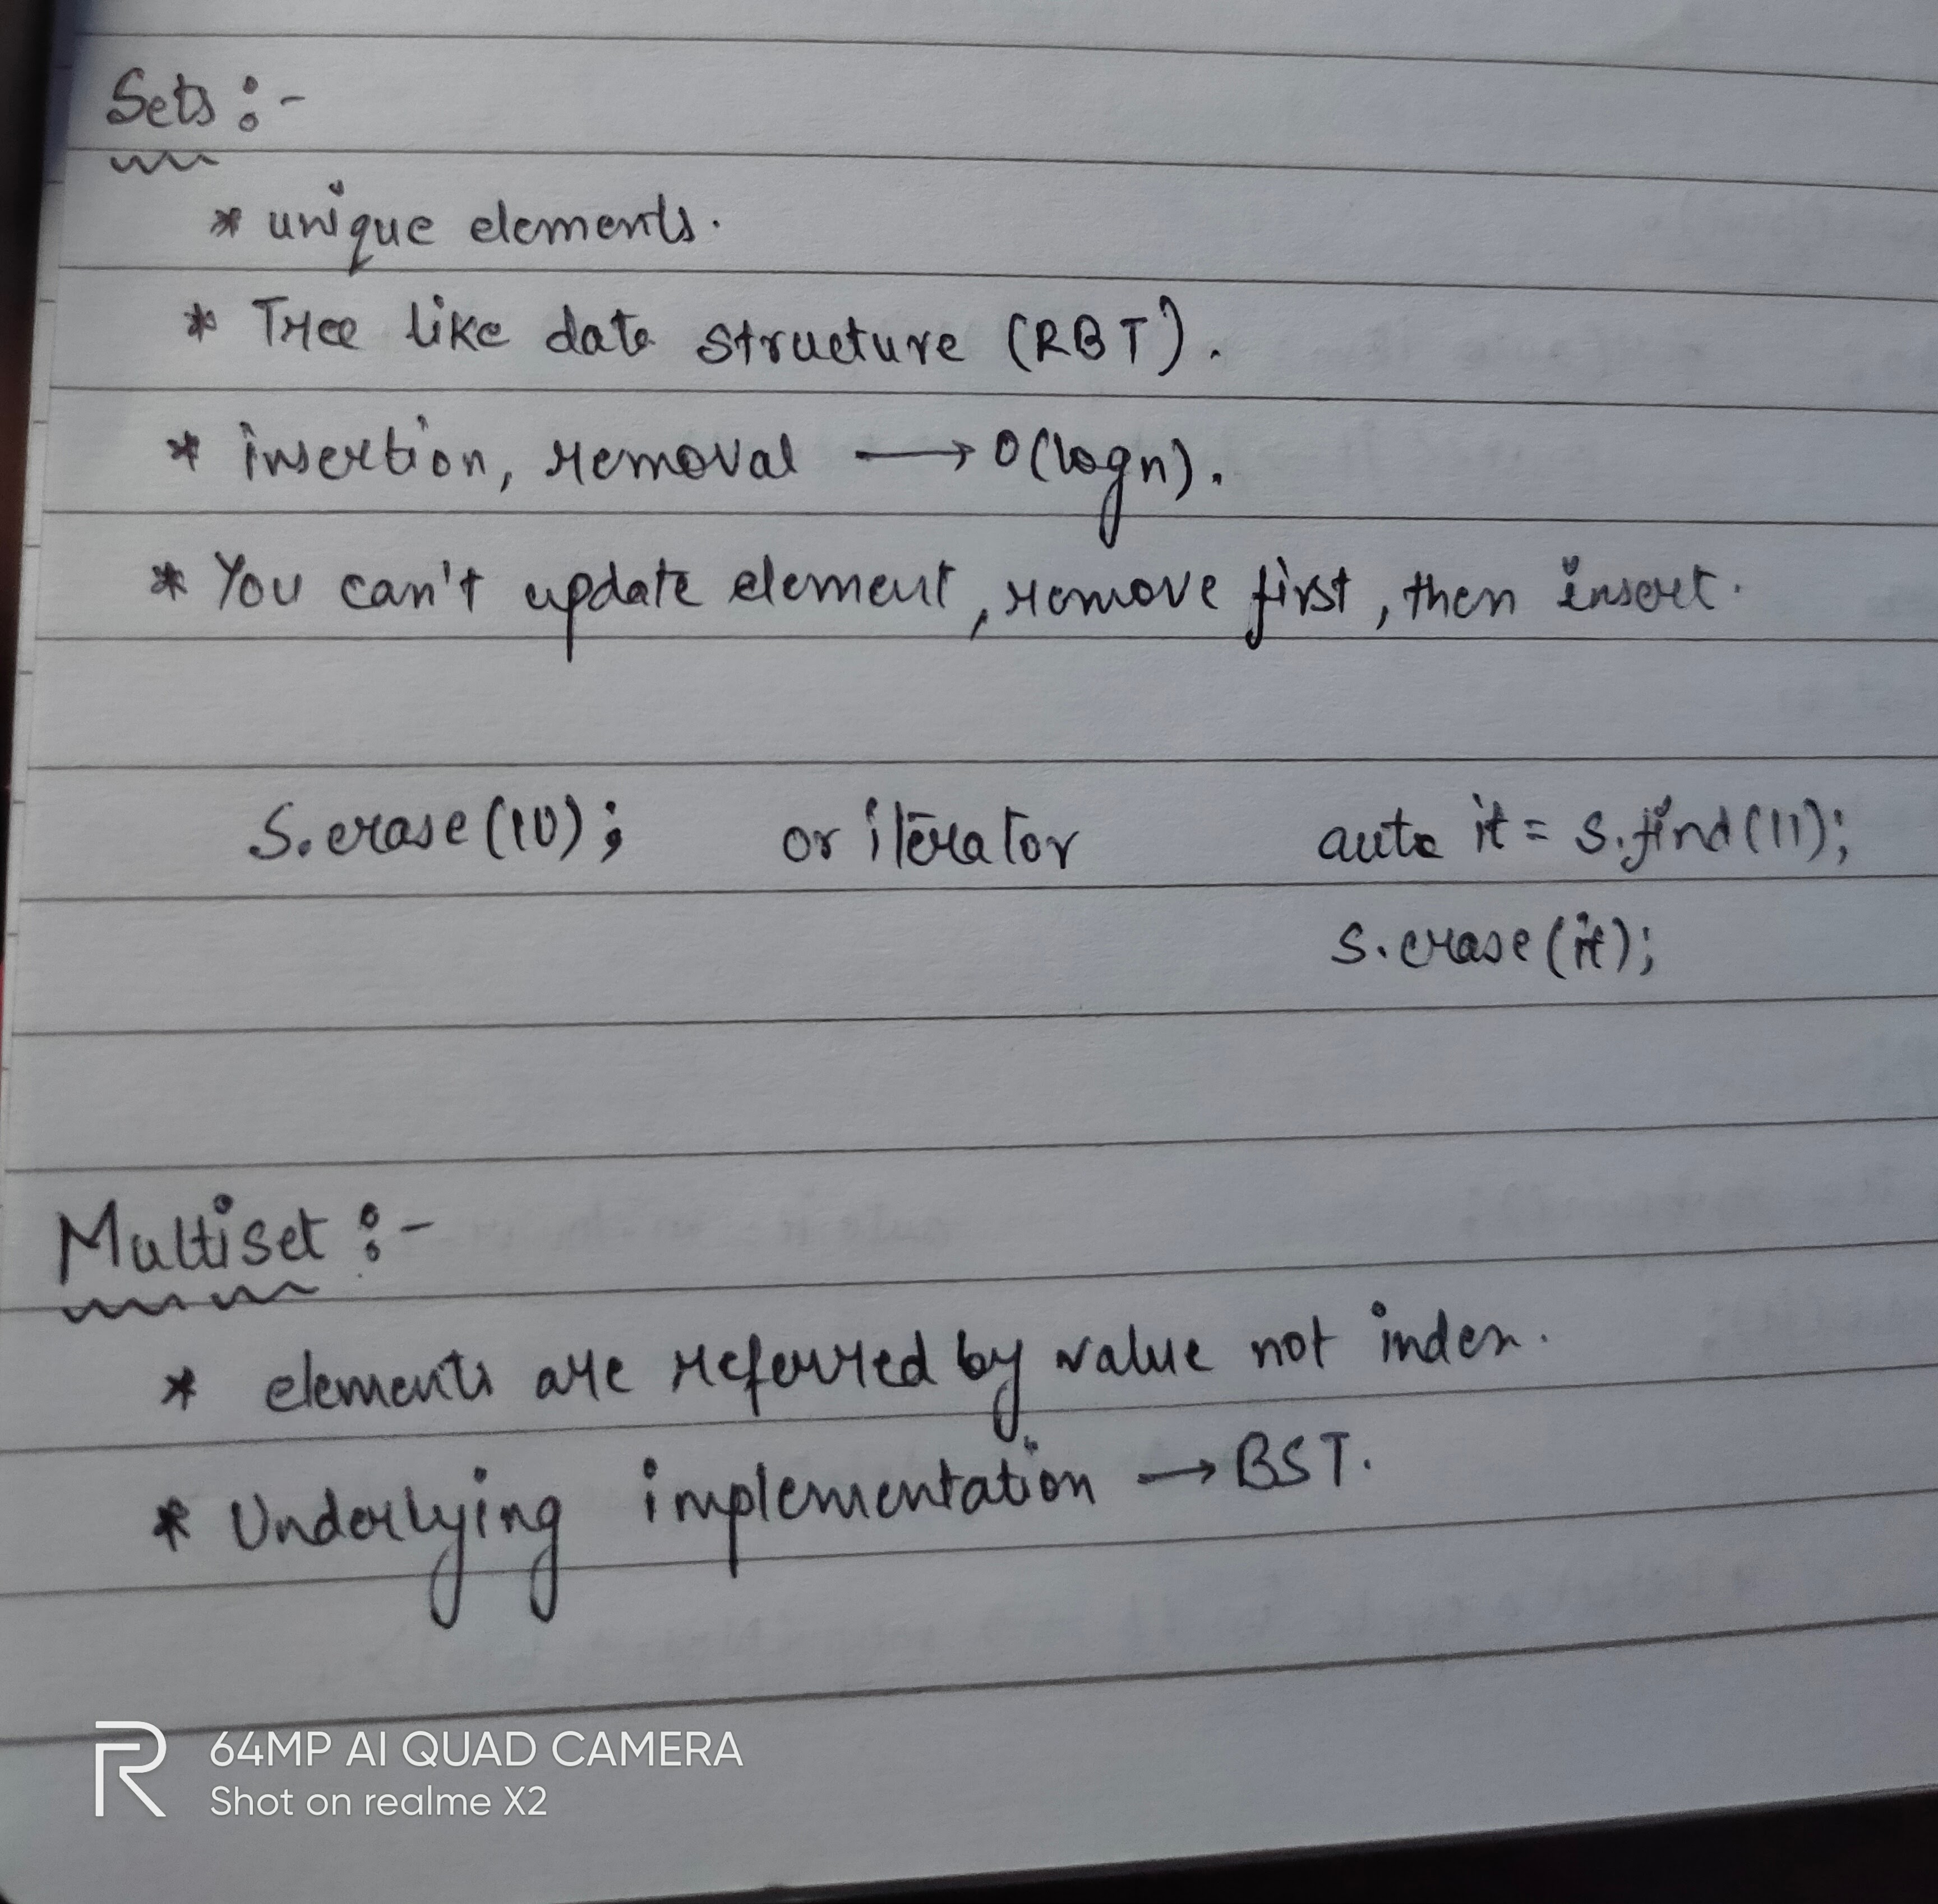 Sets :-
* unique elements.
* Tree like data structure (RBT).
* insertion, removal → O(logn).
* You can't update element, remove first, then insert.
S.erase(10); or iterator auto it = s.find(11);
s.erase(it);
Multiset :-
* elements are referred by value not index.
* Underlying implementation → BST.
64MP AI QUAD CAMERA
Shot on realme X2